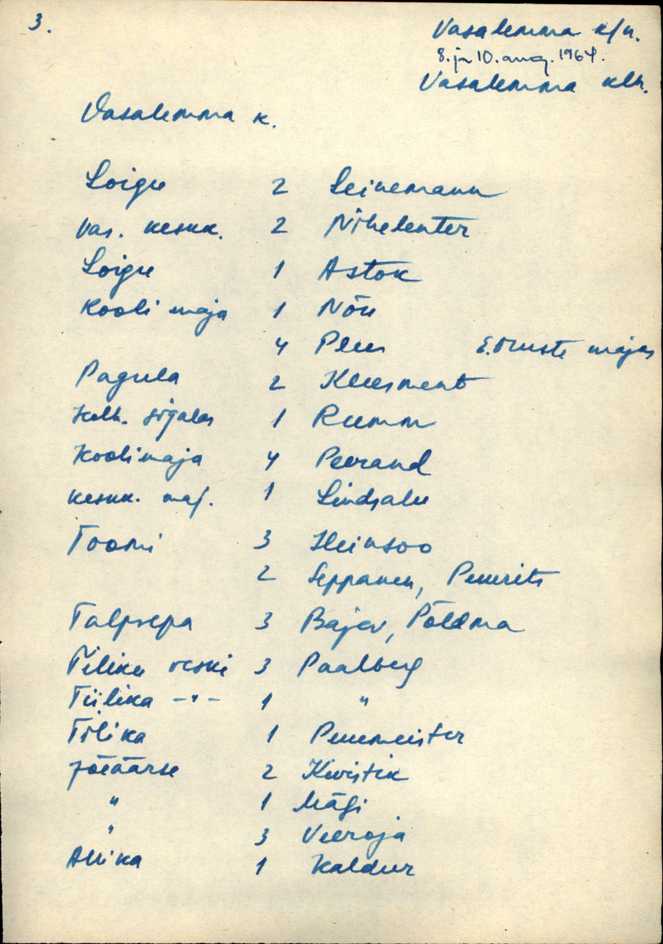 3.
Vasalemma k/n.
8. ja 10. aug. 1964.
Vasalemma klh.
Vasalemma k.
Loigu 2 Leinemann
Vas. keskk. 2 Nihelenter
Loigu 1 Astok
Kooli maja 1 Nõu
4 Pleer majas
Pagula 2 Kleesment
Kolh. sigalas 1 Rumm
Koolimaja 4 Peerand
keskk. maj. 1 Lindsalu
Toomi 3 Heinsoo
2 Seppanen,
Talpsepa 3 Bajev, Põldma
Tiliku veski 3 Paalberg
Tiilika -"- 1 "
Tilika 1 Penemeister
Jõeäärse 2 Kivistik
" 1 Mägi
" 3 Veeroja
Allika 1 Kaldur